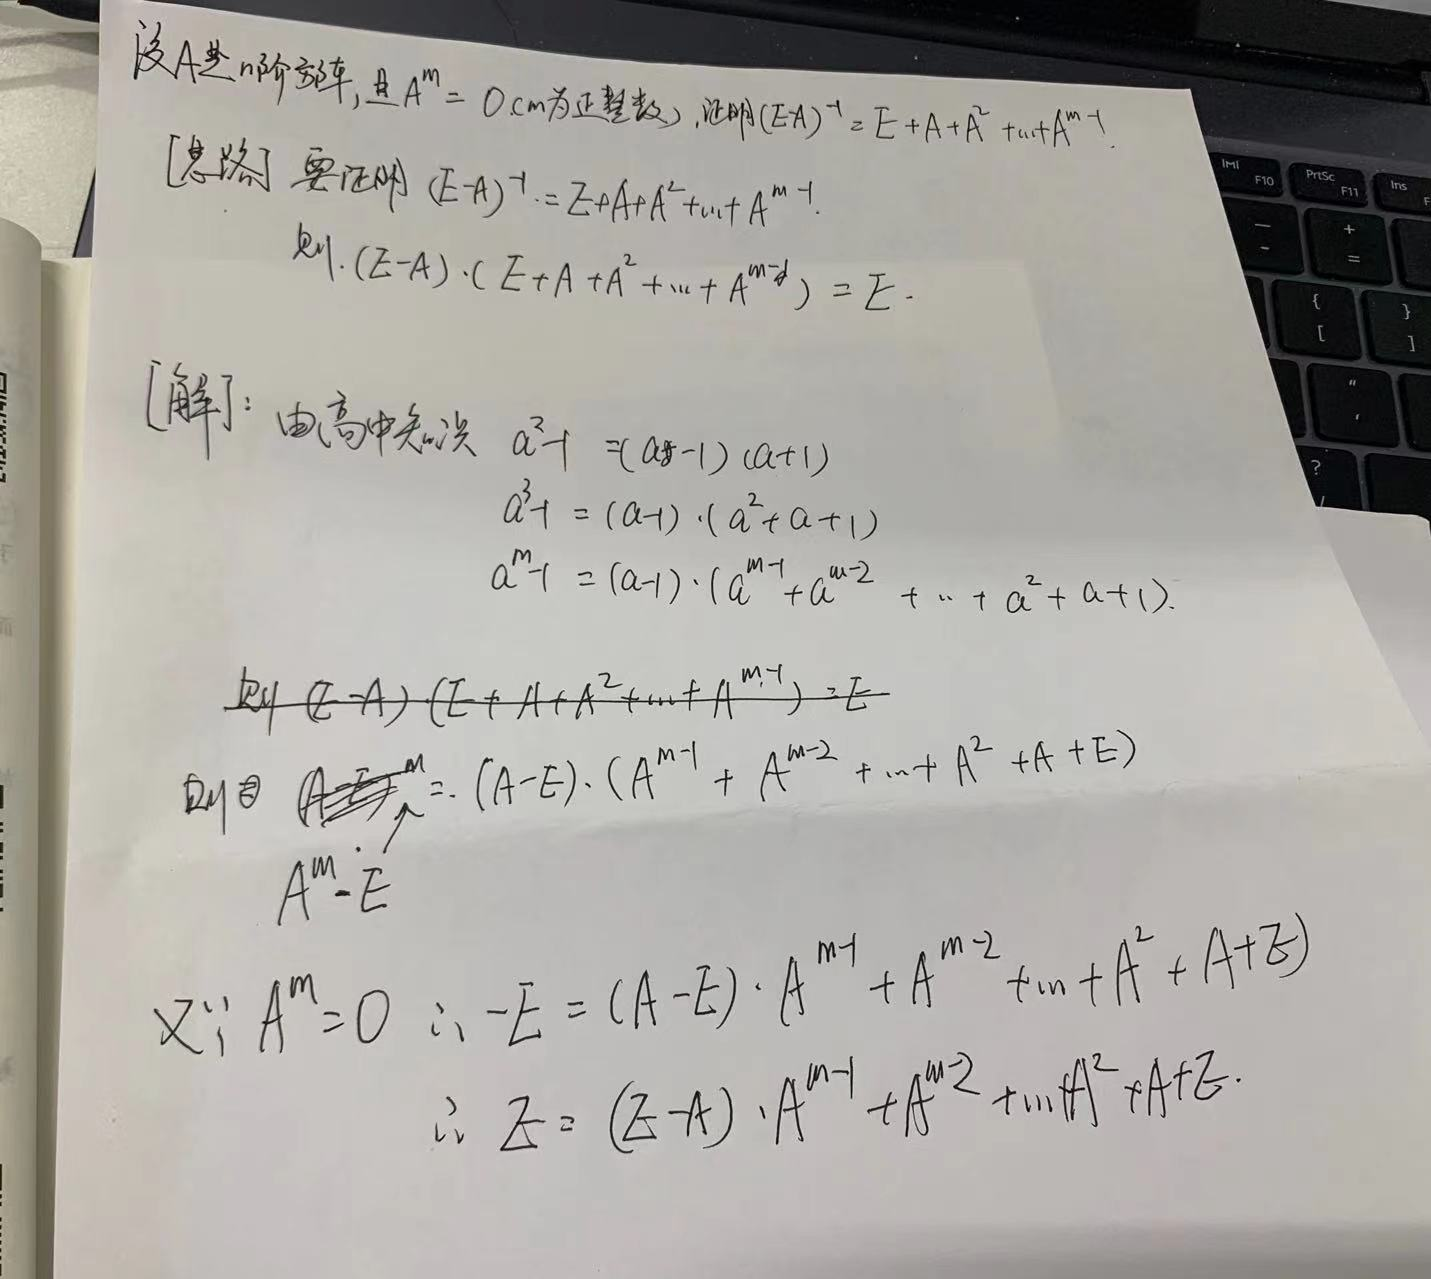 设A是n阶方阵,且A^m = 0(m为正整数),证明(E-A)^-1 = E+A+A^2+...+A^m-1.
[思路] 要证明 (E-A)^-1 = E+A+A^2+...+A^m-1.
则.(E-A)·(E+A+A^2+...+A^m-1) = E.
[解]: 由高中知识 a^2-1 =(a-1)(a+1)
a^3-1 = (a-1)·(a^2+a+1)
a^m-1 = (a-1)·(a^m-1+a^m-2 + .. + a^2+a+1).
则 (E-A) (E+A+A^2+...+A^m-1) = E
则 =.(A-E)·(A^m-1 + A^m-2 + ... + A^2 +A+E)
A^m-E
又∵ A^m=0 ∴ -E = (A-E)·A^m-1+A^m-2+...+A^2+A+E)
∴ E = (E-A)·A^m-1+A^m-2+...+A^2+A+E.
IMI F10
PrtSc F11
Ins
— -
+ =
{ [
} ]
" '
?